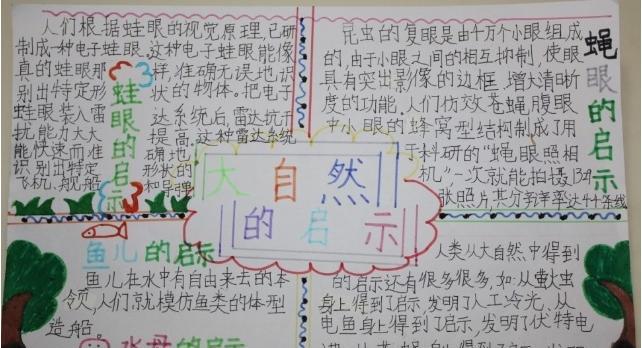 人们根据蛙眼的视觉原理,已研
制成一种电子蛙眼.这种电子蛙眼能像
真的蛙眼那样,准确无误地识
别出特定形状的物体。把电子
蛙眼装入雷达系统后,雷达抗干
扰能力大大提高.这种雷达系统
能快速而准确地
识别出特定形状的
飞机.舰船和导弹
蛙眼的启示
昆虫的复眼是由十万个小眼组成
的,由于小眼之间的相互抑制,使眼
具有突出影像的边框,增大清晰
度的功能.人们仿效苍蝇腹眼
中小眼的蜂窝型结构制成了用
于科研的“蝇眼照相
机”一次就能拍摄
张照片,其分
蝇眼的启示
大自然
的启示
鱼儿的启示
鱼儿在水中有自由来去的本
领,人们就模仿鱼类的体型
造船
水母的启示
人类从大自然中得到
的启示还有很多很多,如:从萤火虫
身上得到了启示,发明了人工冷光,从
电鱼身上得到了启示,发明了伏特电